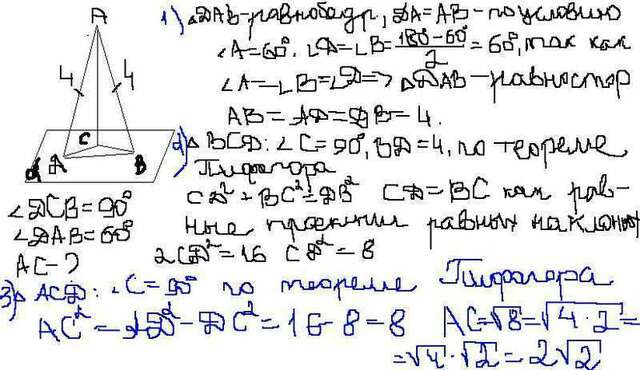 A
4
4
C
D
B
α
∠DCB=90°
∠DAB=60°
AC-?
1) △DAB-равнобедр, DA=AB-по условию
∠A=60°. ∠D=∠B=(180-60°)/2=60°, так как
∠A=∠B=∠D=> △DAB-равностор
AB=AD=DB=4.
2) △BCD: ∠C=90°, BD=4, по теореме
Пифагора
CD²+BC²=DB² CD=BC как рав-
ные проекции равных наклонных
2CD²=16 CD²=8
3) △ACD: ∠C=90° по теореме Пифагора
AC²=AD²-DC²=16-8=8 AC=√8=√4·2=
=√4·√2=2√2